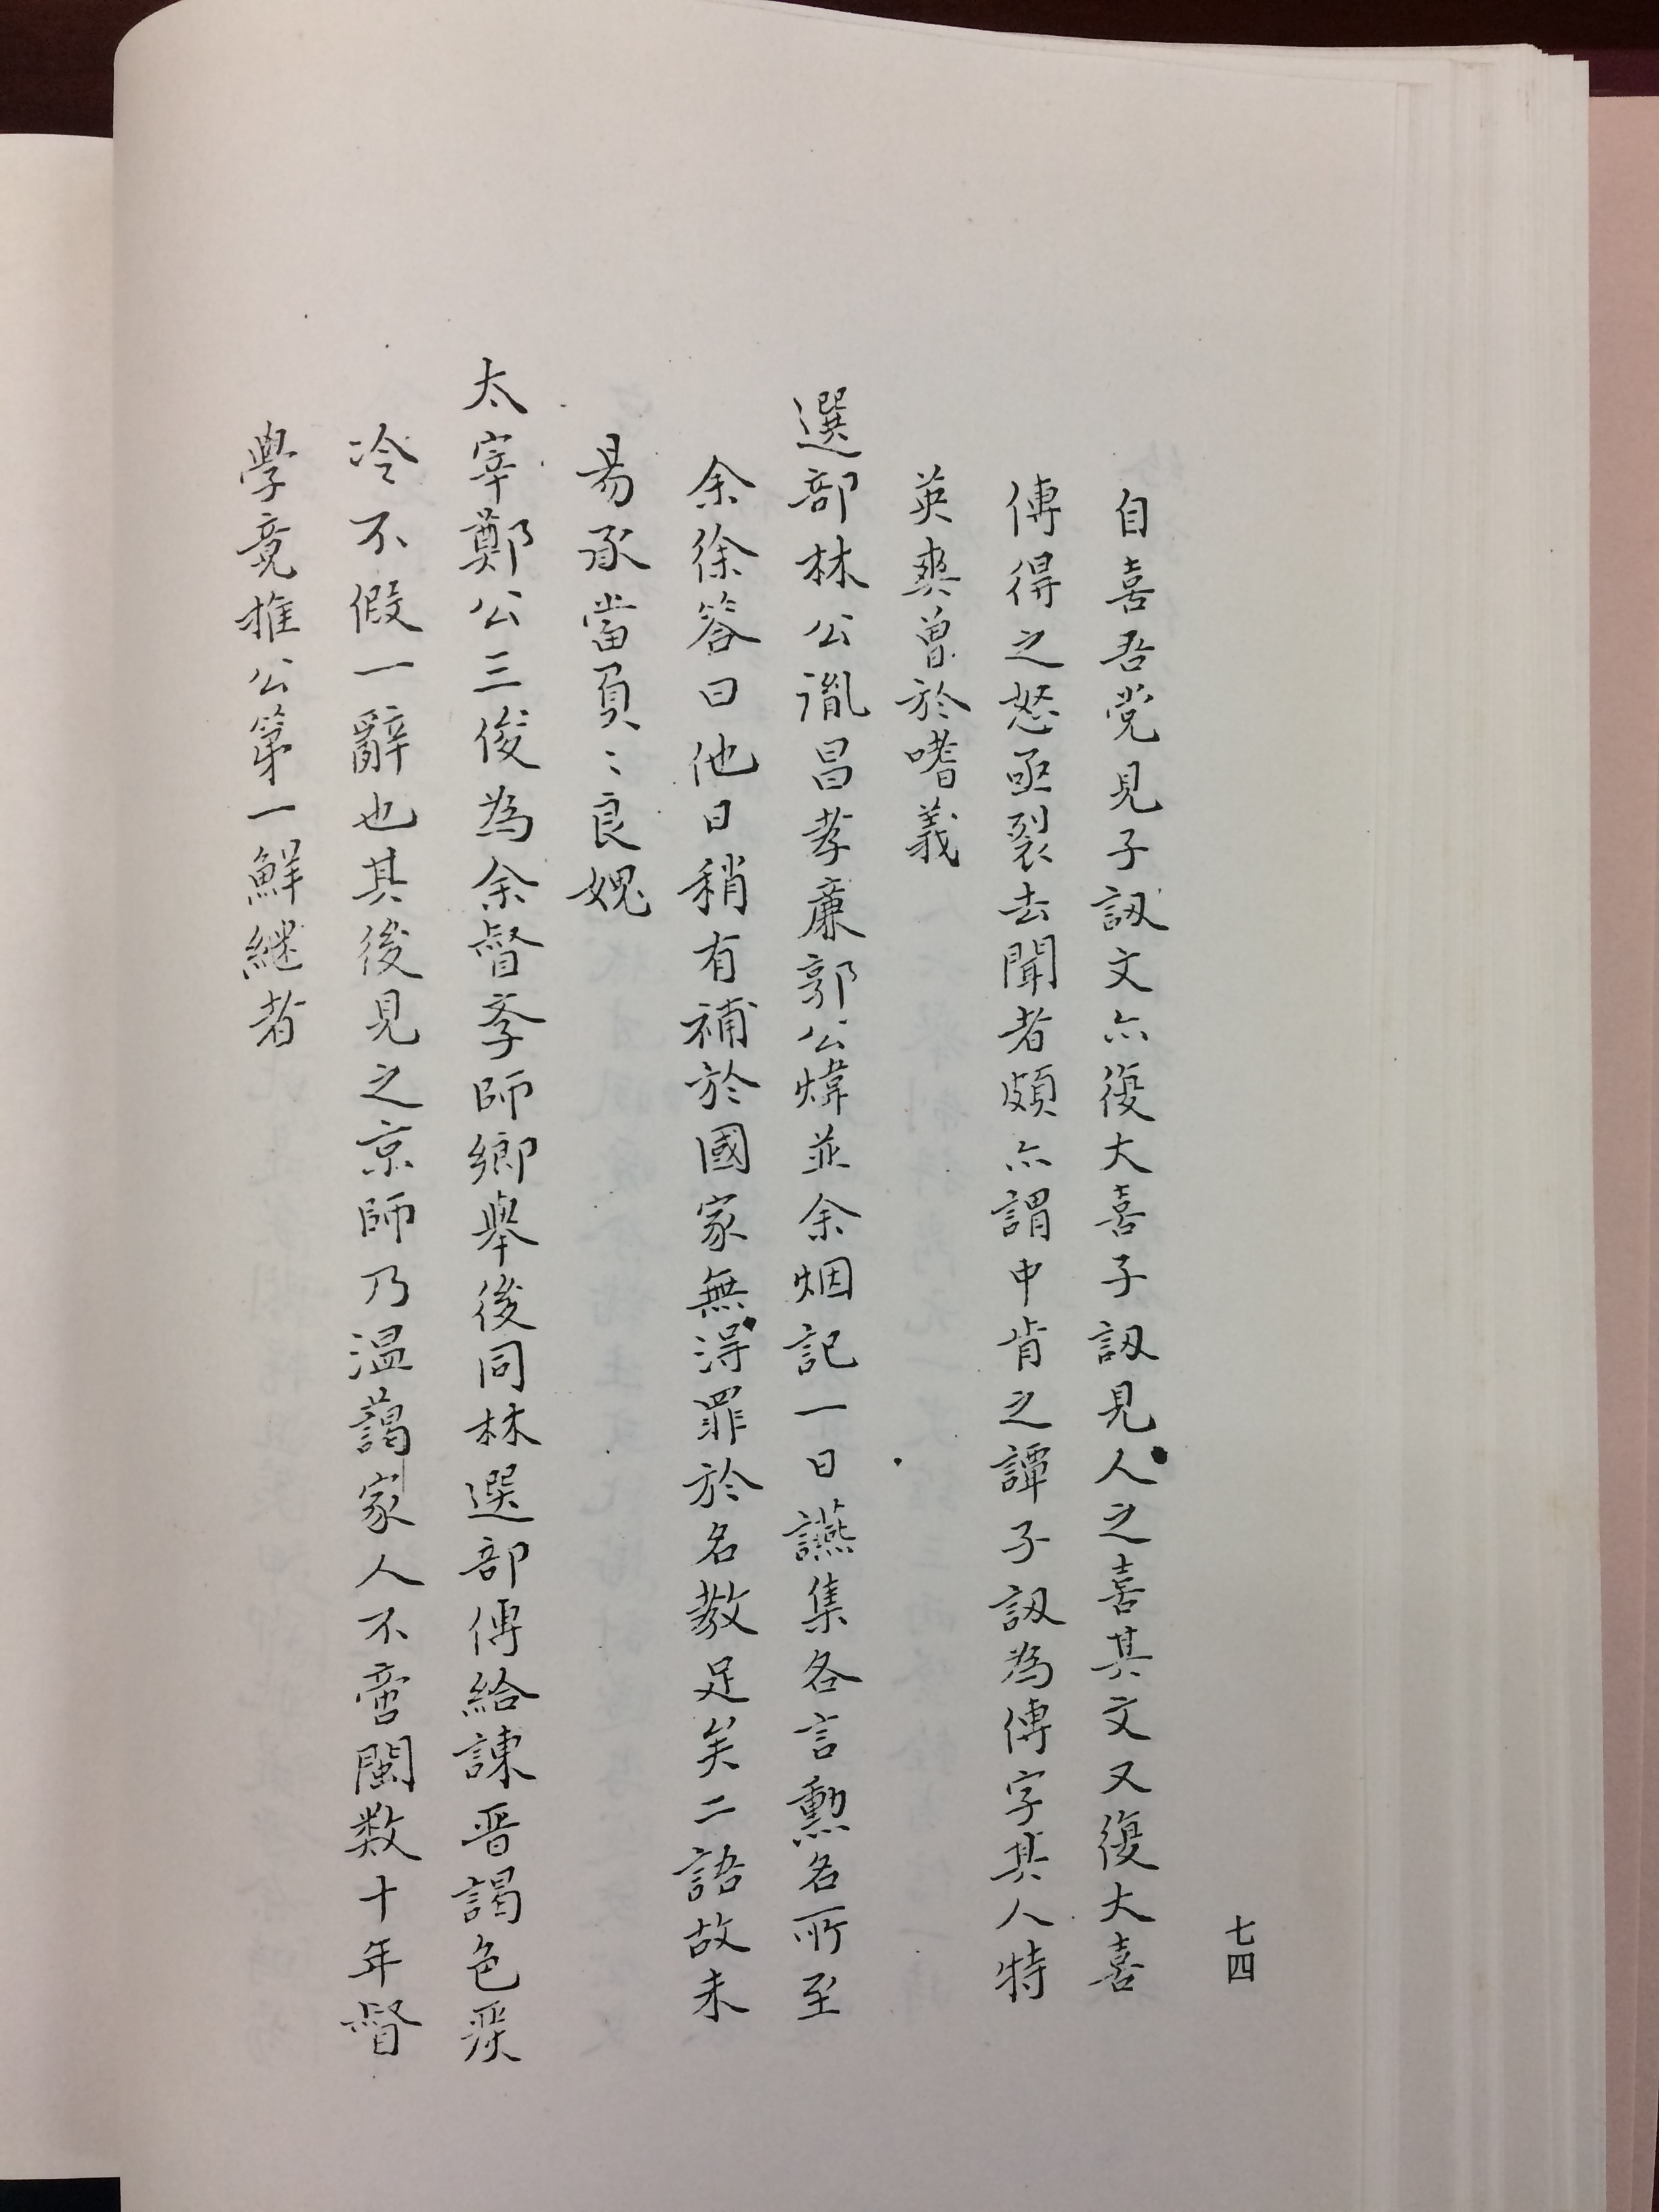 自喜吾党見子訒文亦復大喜子訒見人之喜其文又復大喜
傳得之怒亟裂去聞者頗亦謂中肯之譚子訒為傳字其人特
英爽曾於嗜義
選部林公胤昌孝廉郭公煒並余烟記一日讌集各言勲名所至
余徐答曰他日稍有補於國家無淂罪於名教足矣二語故未
易承當負〻良媿
太宰鄭公三俊為余督斈師鄉舉後同林選部傅給諫晋謁色嚴
冷不假一辭也其後見之京師乃温藹家人不啻閩数十年督
學竟推公第一鮮継者
七四